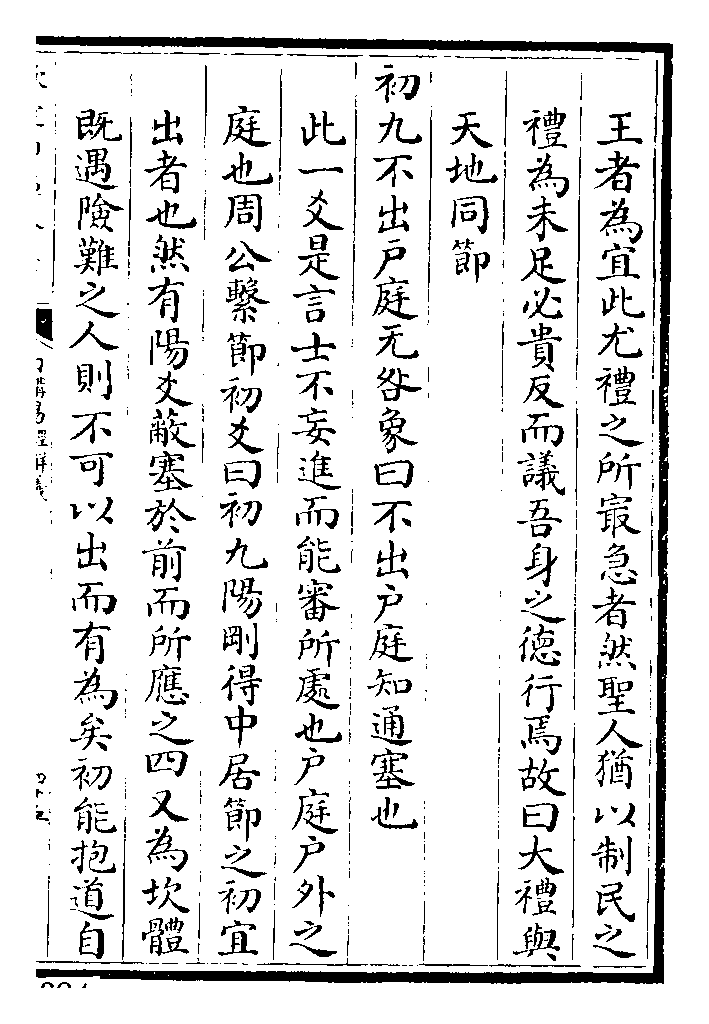 王者為宜此尤禮之所㝡急者然聖人猶以制民之
禮為未足必貴反而議吾身之德行焉故曰大禮與
天地同節
初九不出戶庭无咎象曰不出戶庭知通塞也
此一爻是言士不妄進而能審所處也戶庭戶外之
庭也周公繫節初爻曰初九陽剛得中居節之初宜
出者也然有陽爻蔽塞於前而所應之四又為坎體
既遇險難之人則不可以出而有為矣初能抱道自
日講易經解義